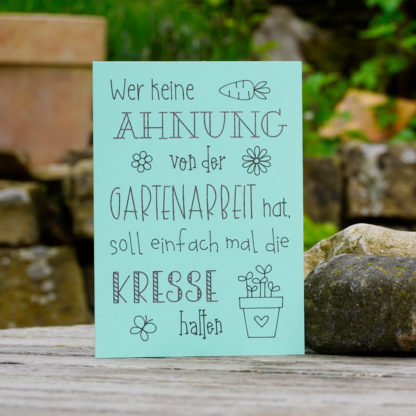 Wer keine
AHNUNG
von der
GARTENARBEIT hat,
soll einfach mal die
KRESSE
halten